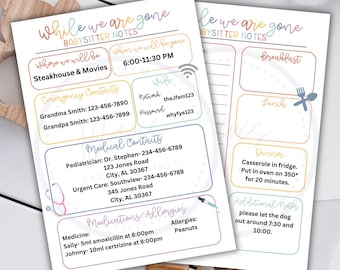 while we are gone
BABYSITTER NOTES
where we will be
Steakhouse & Movies
where we will be gone
6:00-11:30 PM
Emergency Contacts
Grandma Smith: 123-456-7899
Grandpa Smith: 123-456-7890
Wifi
Network the.Jfam123
Password whyfye123
Medical Contacts
Pediatrician: Dr. Stephen- 234-456-6789
123 Jones Road
City, AL 30367
Urgent Care: Southview- 234-456-6789
345 Jones Road
City, AL 30367
Medications/Allergies
Medicine:
Sally- 5ml amoxicillin at 8:00pm
Johnny- 10ml certrizine at 8:00pm
Allergies:
Peanuts
while we are gone
BABYSITTER NOTES
Breakfast
Lunch
Dinner
Casserole in fridge.
Put in oven on 350*
for 20 minutes.
Additional Notes
please let the dog
out around 7:30 and
10:00.